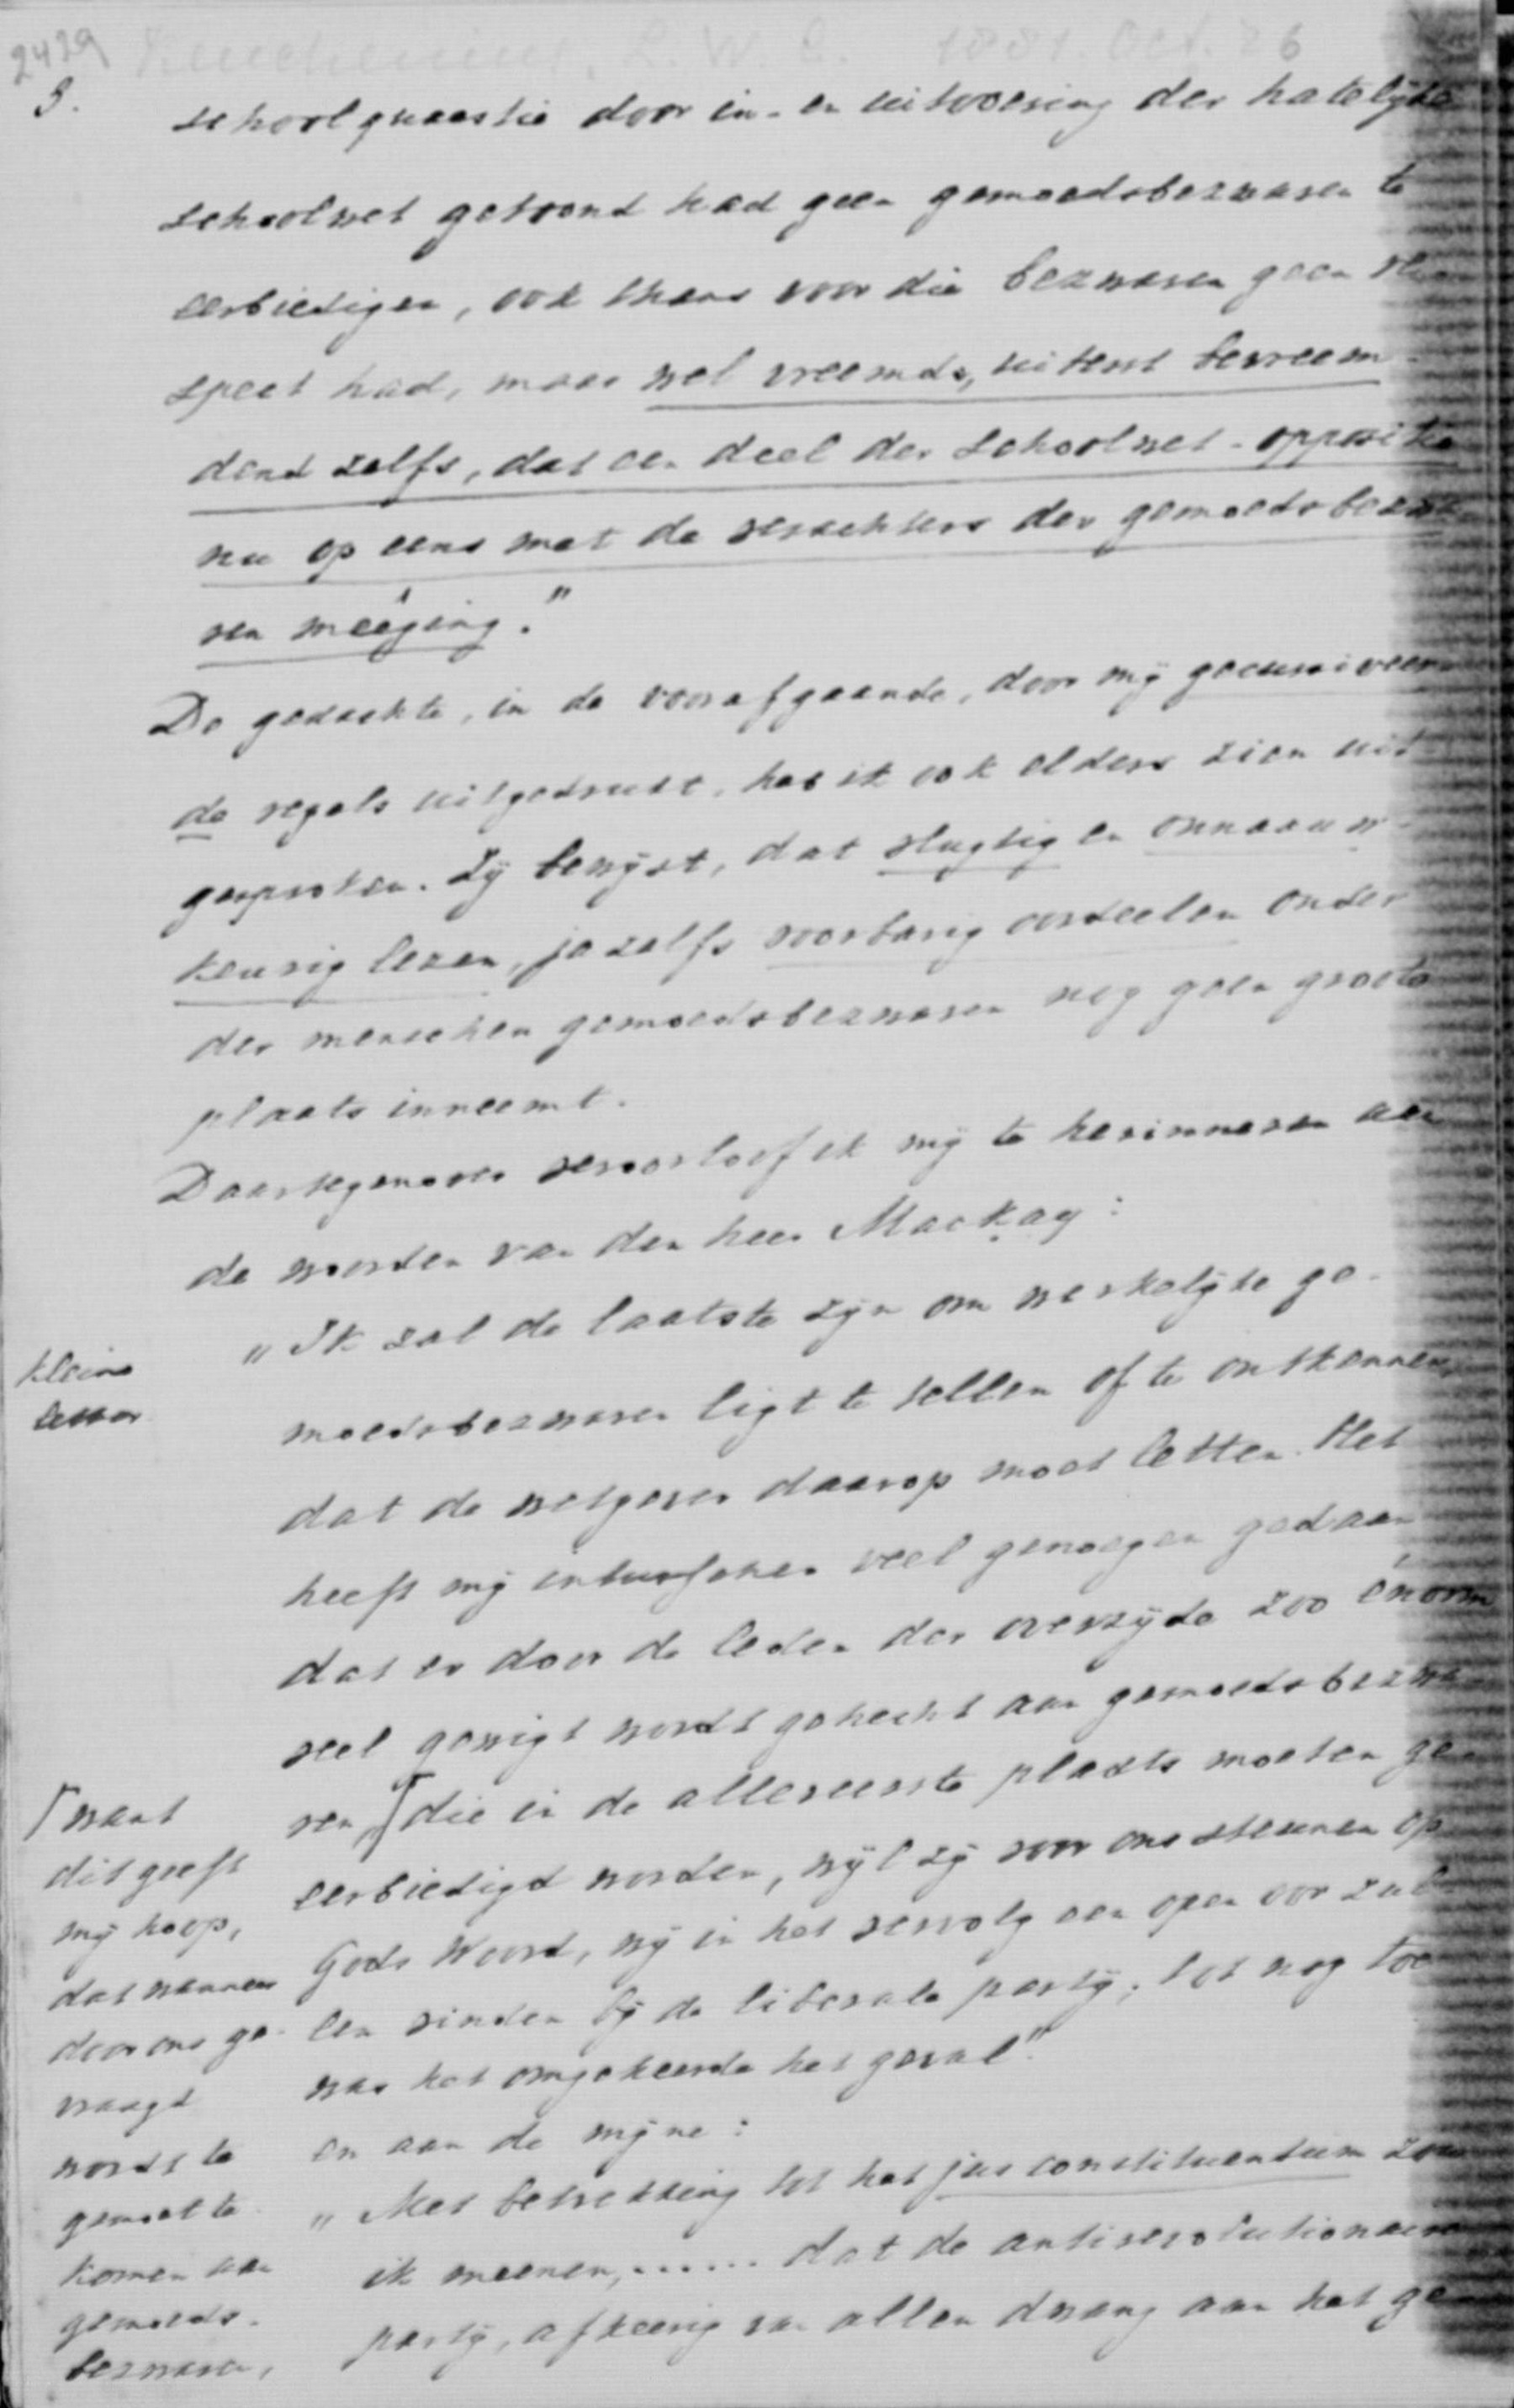 2429
Keuchenius, L. W. C. 1881. Oct. 26
3.
schoolquaestie door in- en uitvoering der hatelijke
schoolwet getoond had geen gemoedsbezwaren te
eerbiedigen, ook thans voor die bezwaren geen re-
spect had, maar wel vreemd, uiterst bevreem-
dend zelfs, dat een deel der schoolwet-oppositie
nu op eens met de verachters der gemoedsbezwa-
ren meêging."
De gedachte, in de voorafgaande, door mij gecursiveer-
de regels uitgedrukt, heb ik ook elders zien uit-
gesproken. Zij bewijst, dat vlugtig en onnaauw-
keurig lezen, ja zelfs voorbarig oordeelen onder
der menschen gemoedsbezwaren nog geen groote
plaats inneemt.
Daartegenover veroorloof ik mij te herinneren aan
de woorden van den heer Mackay:
kleine
letter
„Ik zal de laatste zijn om werkelijke ge-
moedsbezwaren ligt te tellen of te ontkennen,
dat de wetgever daarop moet letten. Het
heeft mij intusschen veel genoegen gedaan
dat er door de leden der overzijde zoo énorm
veel gewigt wordt gehecht aan gemoedsbezwa-
ren,⌈ die in de allereerste plaats moeten ge-
eerbiedigd worden, wijl zij voor ons steunen op
Gods Woord, wij in het vervolg een open oor zul-
len vinden bij de liberale partij; tot nog toe
was het omgekeerde het geval."
⌈want
dit geeft
mij hoop,
dat wanneer
door ons ge-
vraagd
wordt te
gemoet te
komen aan
gemoeds-
bezwaren,
en aan de mijne:
„Met betrekking tot het jus constituendum zou
ik meenen, ...... dat de antirevolutionaire
partij, afkeerig van allen dwang aan het ge-